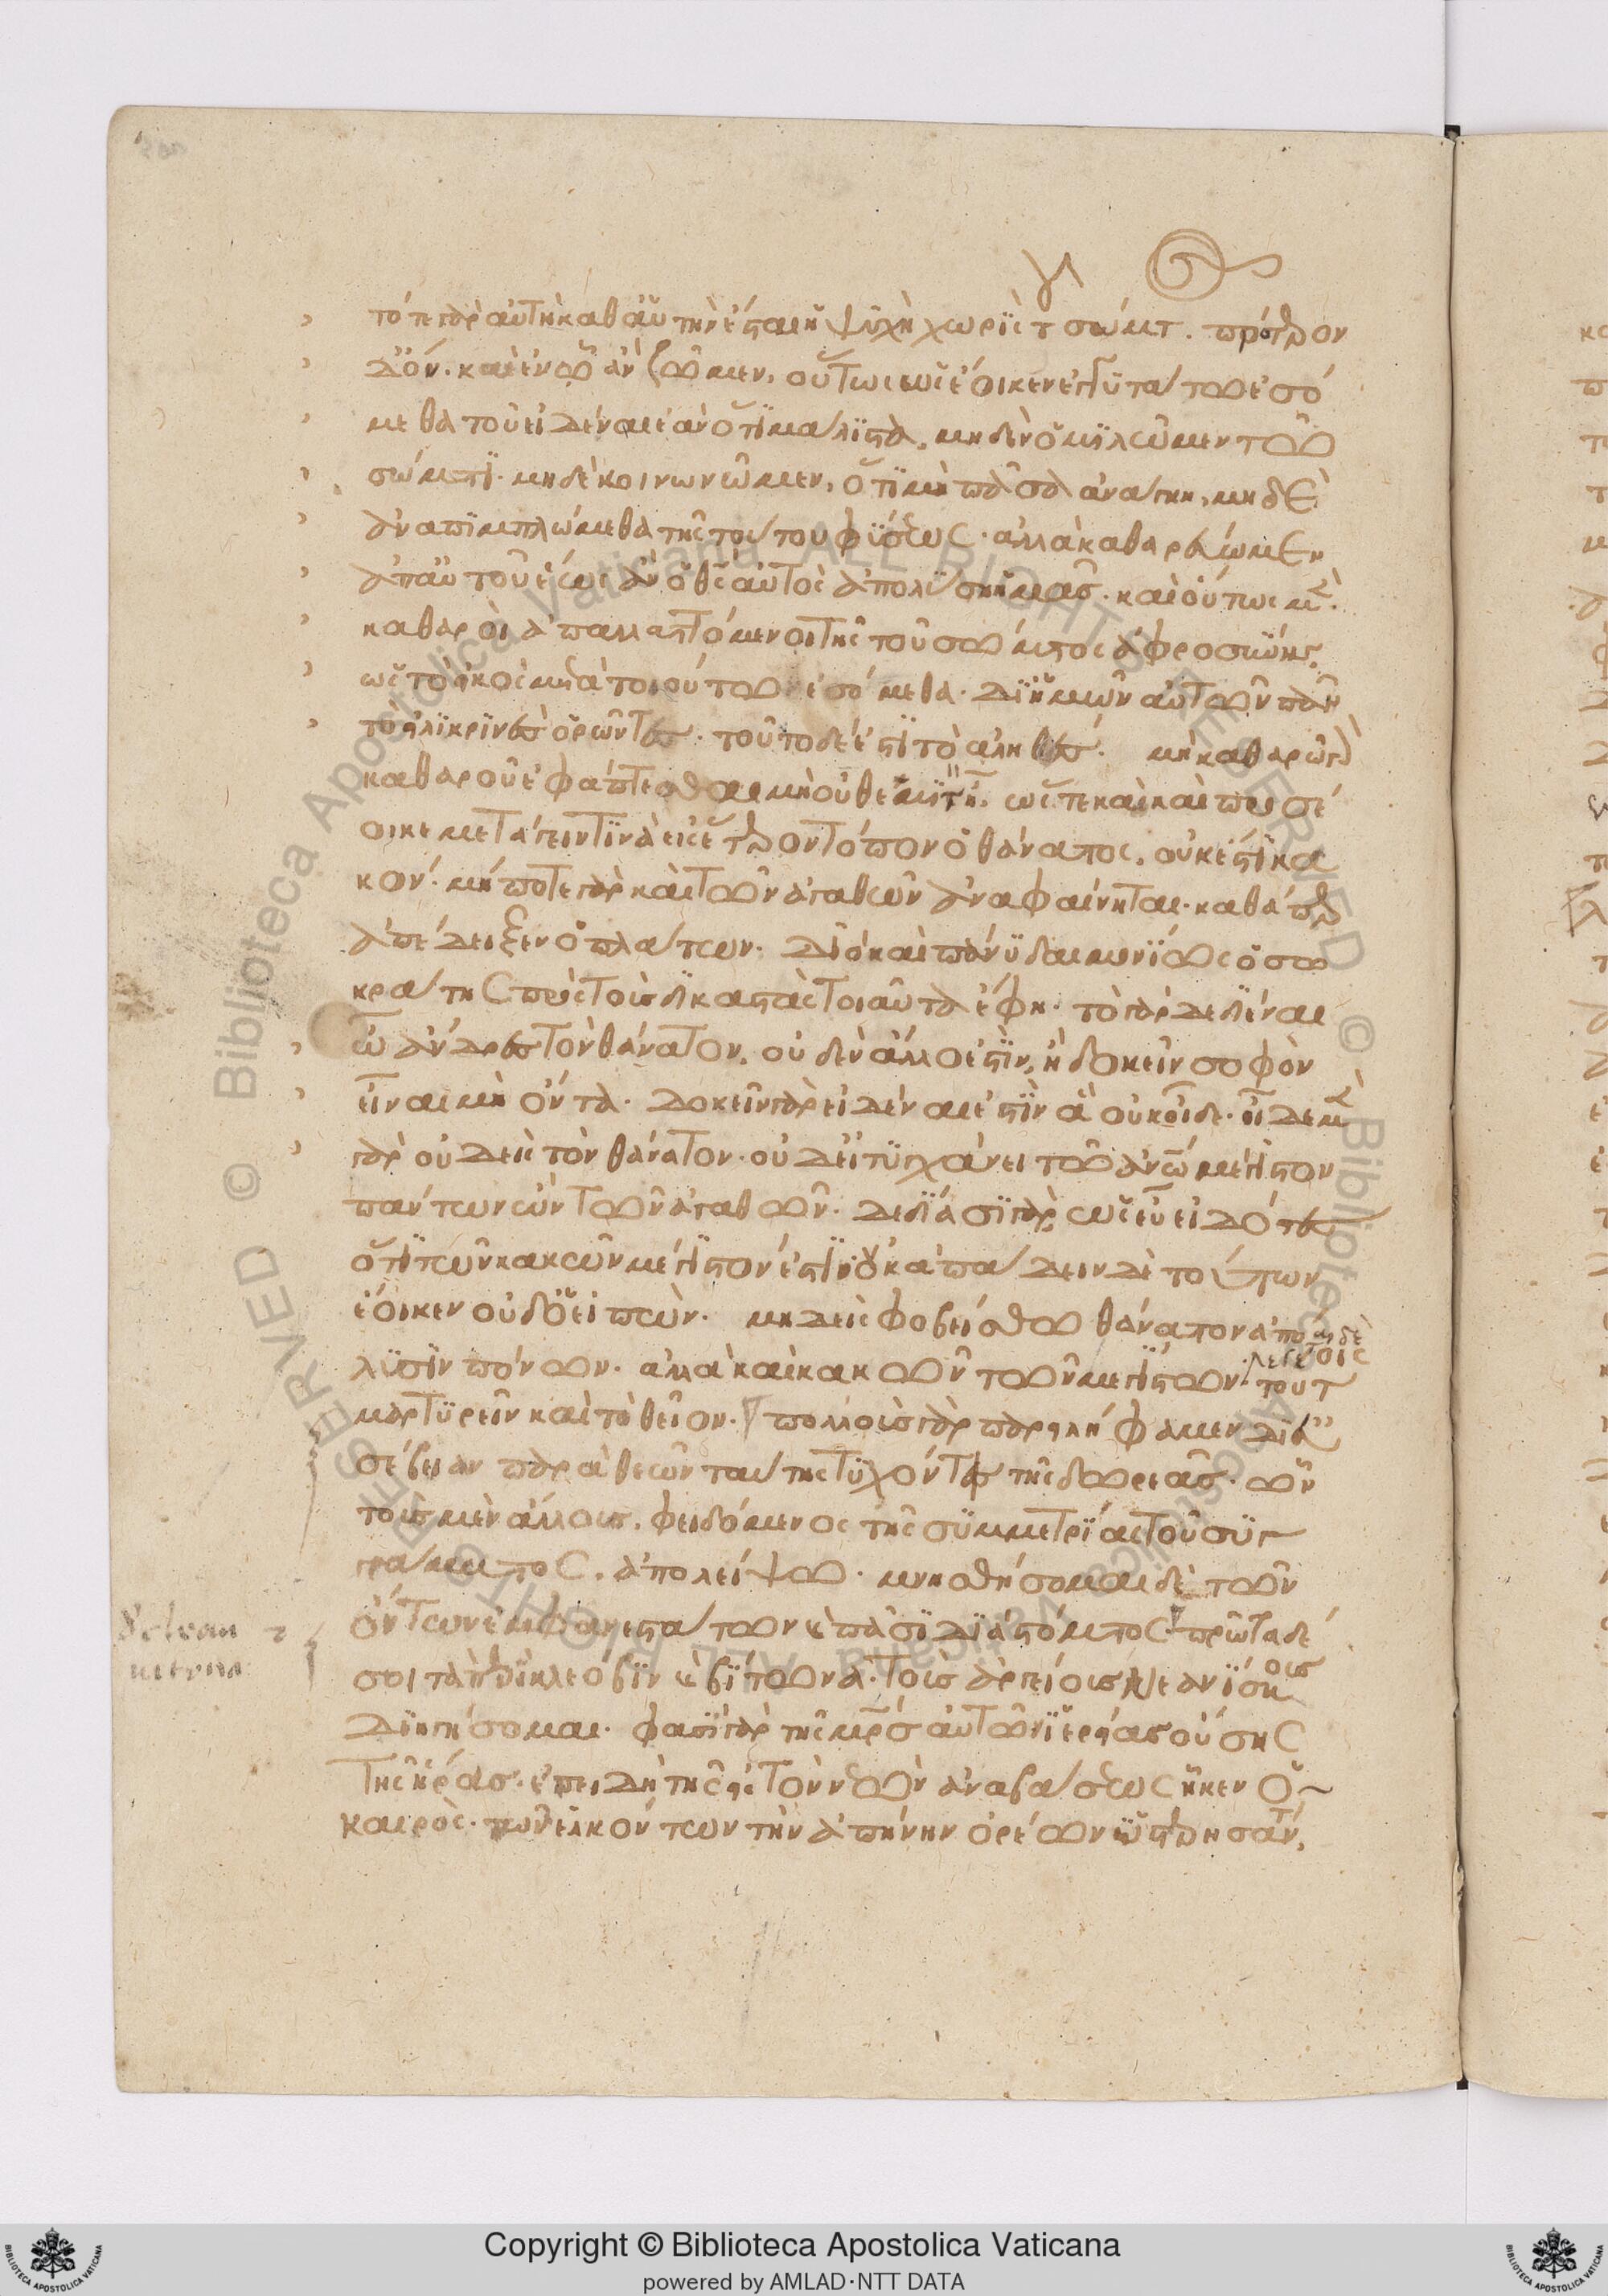 τότε γὰρ αὐτὴ καθ αὑτὴν ἔσται ἡ ψυχὴ χωρὶς τ σώματ. πρότερον
δ οὔ. καὶ ἐν ᾧ ἂν ζῶμεν, οὕτως ὡς ἔοικεν ἐγγυτάτω ἐσό
μεθα τοῦ εἰδέναι ἐὰν ὅτι μάλιστα, μηδὲν ὁμιλῶμεν τῶ
σώματι. μηδὲ κοινωνῶμεν, ὅτι μὴ πᾶσα ἀνάγκη, μηδὲ
ἀναπιμπλώμεθα τῆς τούτου φύσεως. ἀλλὰ καθαρεύωμεν
ἀπ αὐτοῦ ἕως ἂν ὁ θς αὐτὸς ἀπολύση ἡμᾶς. καὶ οὕτως μὲν
καθαροὶ ἀπαλλαττόμενοι τῆς τοῦ σώματος ἀφροσύνης,
ὡς τὸ εἰκὸς μετὰ τοιούτων ἐσόμεθα. δι ἡμῶν αὐτῶν πᾶν
τὸ εἰλικρινὲς ὁρῶντες. τοῦτο δέ ἐστι τὸ ἀληθές. μὴ καθαρῶ γὰρ
καθαροῦ ἐφάπτεσθαι μὴ οὐ θεμιτὸν ἦ. ὥστε καὶ καὶ προσέ
οικε μετάγειν τινὰ εἰς ἕτερον τόπον ὁ θάνατος, οὐκ ἔστι κα
κόν. μήποτε γὰρ καὶ τῶν ἀγαθῶν ἀναφαίνηται. καθάπερ
ἀπέδειξεν ὁ πλάτων. διὸ καὶ πάνυ δαιμονίως ὁ σω
κράτης πρὸς τοὺς δικαστὰς τοιαῦτα ἔφη. τὸ γὰρ δεδιέναι
ὦ ἄνδρες τὸν θάνατον, οὐδὲν ἄλλο ἐστὶν, ἢ δοκεῖν σοφὸν
εἶναι μὴ ὄντα. δοκεῖν γὰρ εἰδέναι ἐστὶν ἃ οὐκ οἶδε. οἶδε μὲν
γὰρ οὐδεὶς τὸν θάνατον. οὐδ εἰ τυγχάνει τῶ ἀνω μέγιστον
πάντων ὂν τῶν ἀγαθῶν. δεδίασι γὰρ ὡς εὖ εἰδότες
ὅτι τῶν κακῶν μέγιστόν ἐστι. οὐκ ἀπάδειν δὲ τούτων
ἔοικεν οὐδ ὁ εἰπών. μηδεὶς φοβείσθω θάνατον ἀπό
λυσιν πόνων. ἀλλὰ καὶ κακῶν τῶν μεγίστων. λέγεται δὲ τούτοις
μαρτυρεῖν καὶ τὸ θεῖον. πολλοὺς γὰρ παρειλήφαμεν δι εὐ
σέβειαν παρὰ θεῶν ταύτης τυχόντας τῆς δωρεᾶς. ὧν
τοὺς μὲν ἄλλους, φειδόμενος τῆς συμμετρίας τοῦ συγ
γράμματος, ἀπολείψω. μνησθήσομαι δὲ τῶν
ὄντων ἐμφανεστάτων καὶ πᾶσι διὰ στόματος πρῶτα δέ
σοι τὰ περὶ κλέοβιν καὶ βίτωνα. τοὺς ἀργείους νεανίσκους
διηγήσομαι. φασὶ γὰρ τῆς μρς αὐτῶν ἱερείας οὔσης
τῆς ἥρας. ἐπειδὴ τῆς εἰς τὸν νεὼν ἀναβάσεως ἧκεν ὁ
καιρὸς. τῶν ἑλκόντων τὴν ἀπήνην ὀρέων ὑστερησάντων,